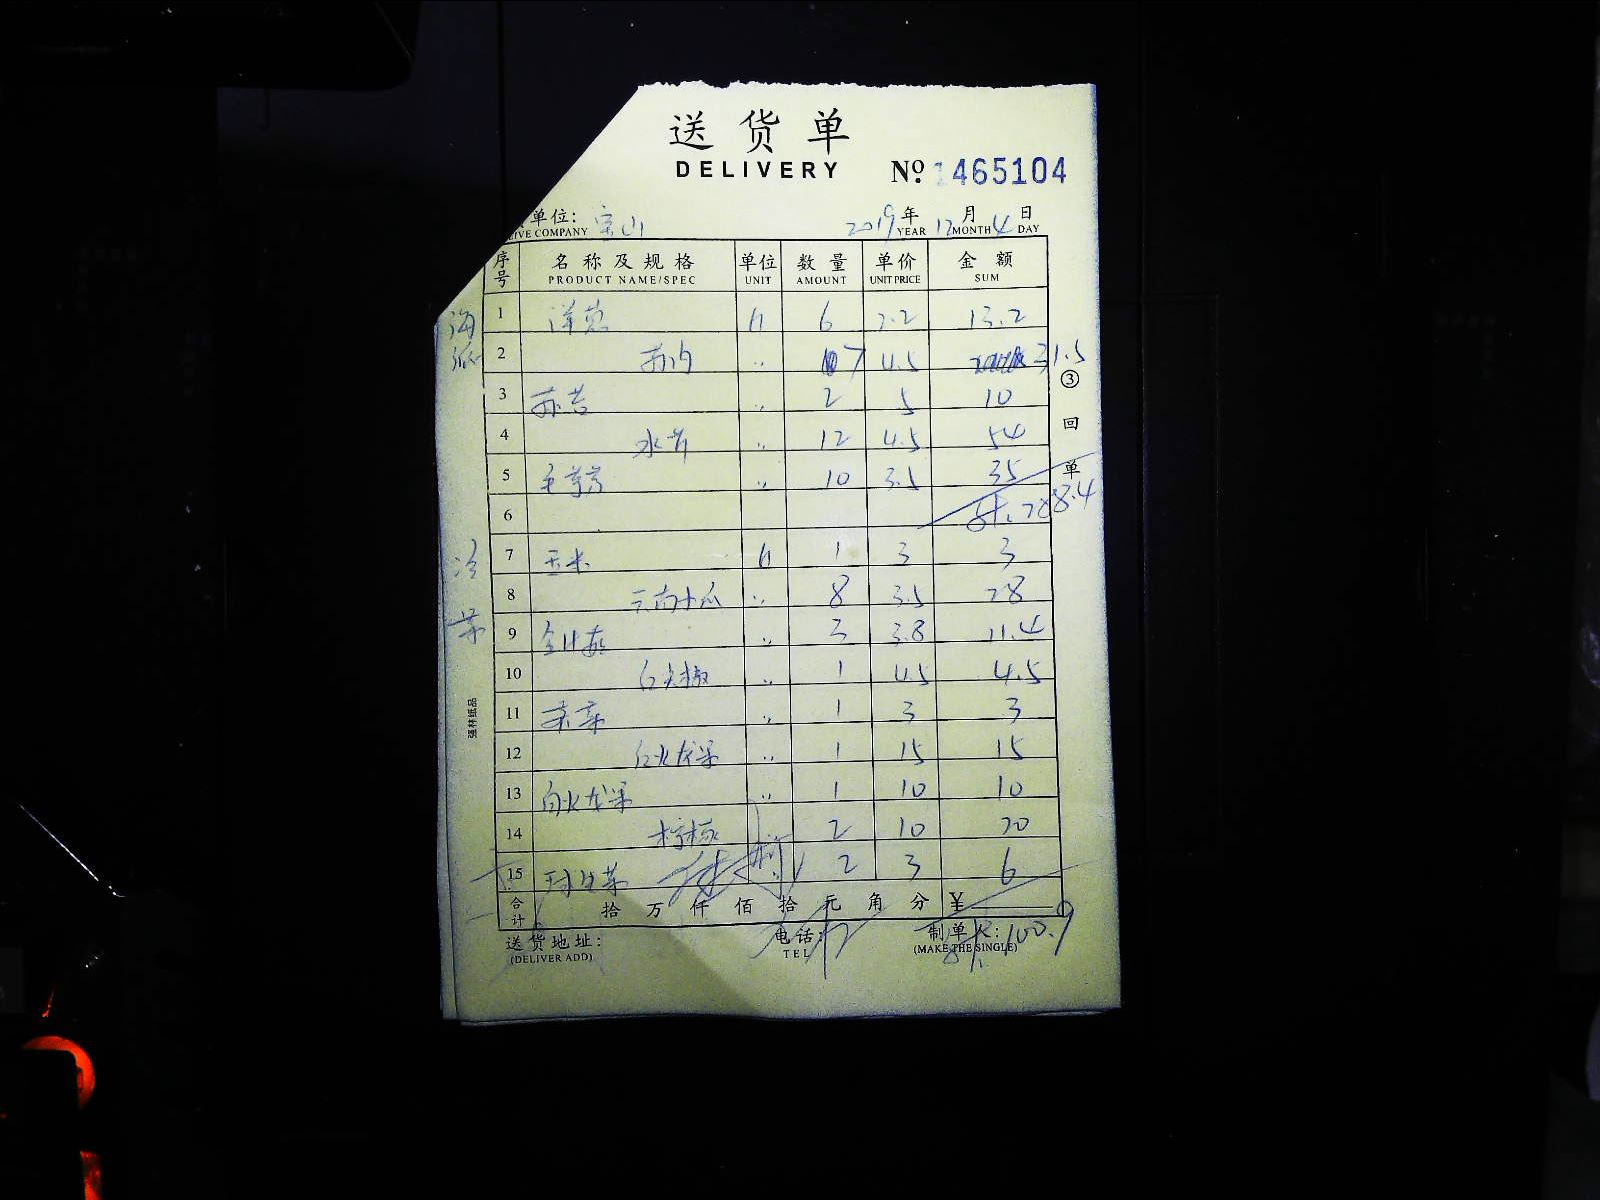 送货单
DELIVERY
№ 1465104
单位: 宝山 2019 年 12 月 4 日
IVE COMPANY YEAR MONTH DAY
序号 名称及规格 单位 数量 单价 金额
PRODUCT NAME/SPEC UNIT AMOUNT UNIT PRICE SUM
1 洋葱 6 2.2 13.2
2 7 4.5 31.5
3 2 5 10
4 水芹 12 4.5 54
5 10 3.5 35
6 288.4
7 玉米 1 3 3
8 云南小瓜 8 3.5 28
9 3 3.8 11.4
10 1 4.5 4.5
11 1 3 3
12 红火龙果 1 15 15
13 白火龙果 1 10 10
14 柠檬 2 10 20
15 球生菜 2 3 6
合计 拾 万 仟 佰 拾 元 角 分 ¥
送货地址: 电话: 制单人: 100.9
(DELIVER ADD) TEL (MAKE THE SINGLE)
③回单
强林纸品